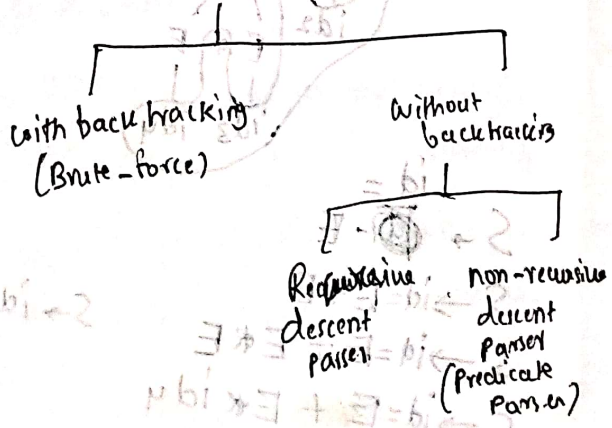 with backtracking
(Brute-force)
without
backtracking
Recursive
descent
Parser
non-recursive
descent
Parser
(Predicate
Parser)